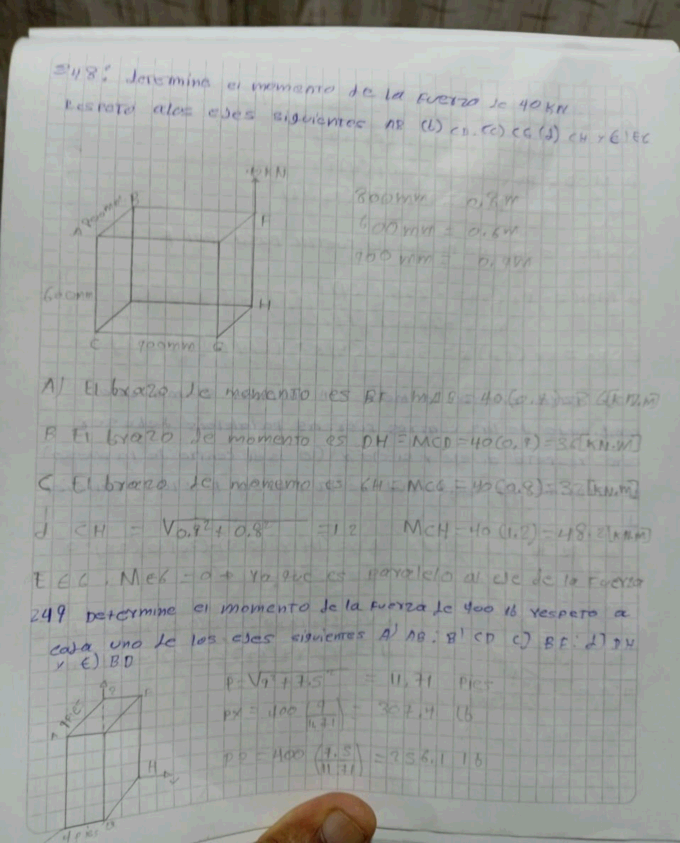 248: determine el momento de la fuerza de 40 KN
respeto a los ejes siguientes AB (b) CD (c) CG (d) CH y E) EC
KN
800mm = 0,8m
600mm = 0,6m
900mm = 0,9m
A 800mm B
F
600mm
H
C 900mm G
A) El brazo de momento es BF MAB = 40(0,9) = 36[KN.m]
B El brazo de momento es DH = MCD = 40(0,9) = 36[KN.m]
C. El brazo de momento es GH = MCG = 40(0.8) = 32[KN.m]
d CH = √0,9²+0,8² = 1.2 MCH = 40(1,2) = 48,2[KN.m]
E EC. MEC = 0 + ya que es paralelo al eje de la fuerza
249 Determine el momento de la fuerza de 400 lb respeto a
cada uno de los ejes siguientes A) AB: B) CD C) BF: d) DH
y E) BD
P = √9²+7.5² = 11,71 pies
PX = 400 (9/11,71) = 307,4 lb
PP = 400 (7.5/11.71) = 256,1 lb
H